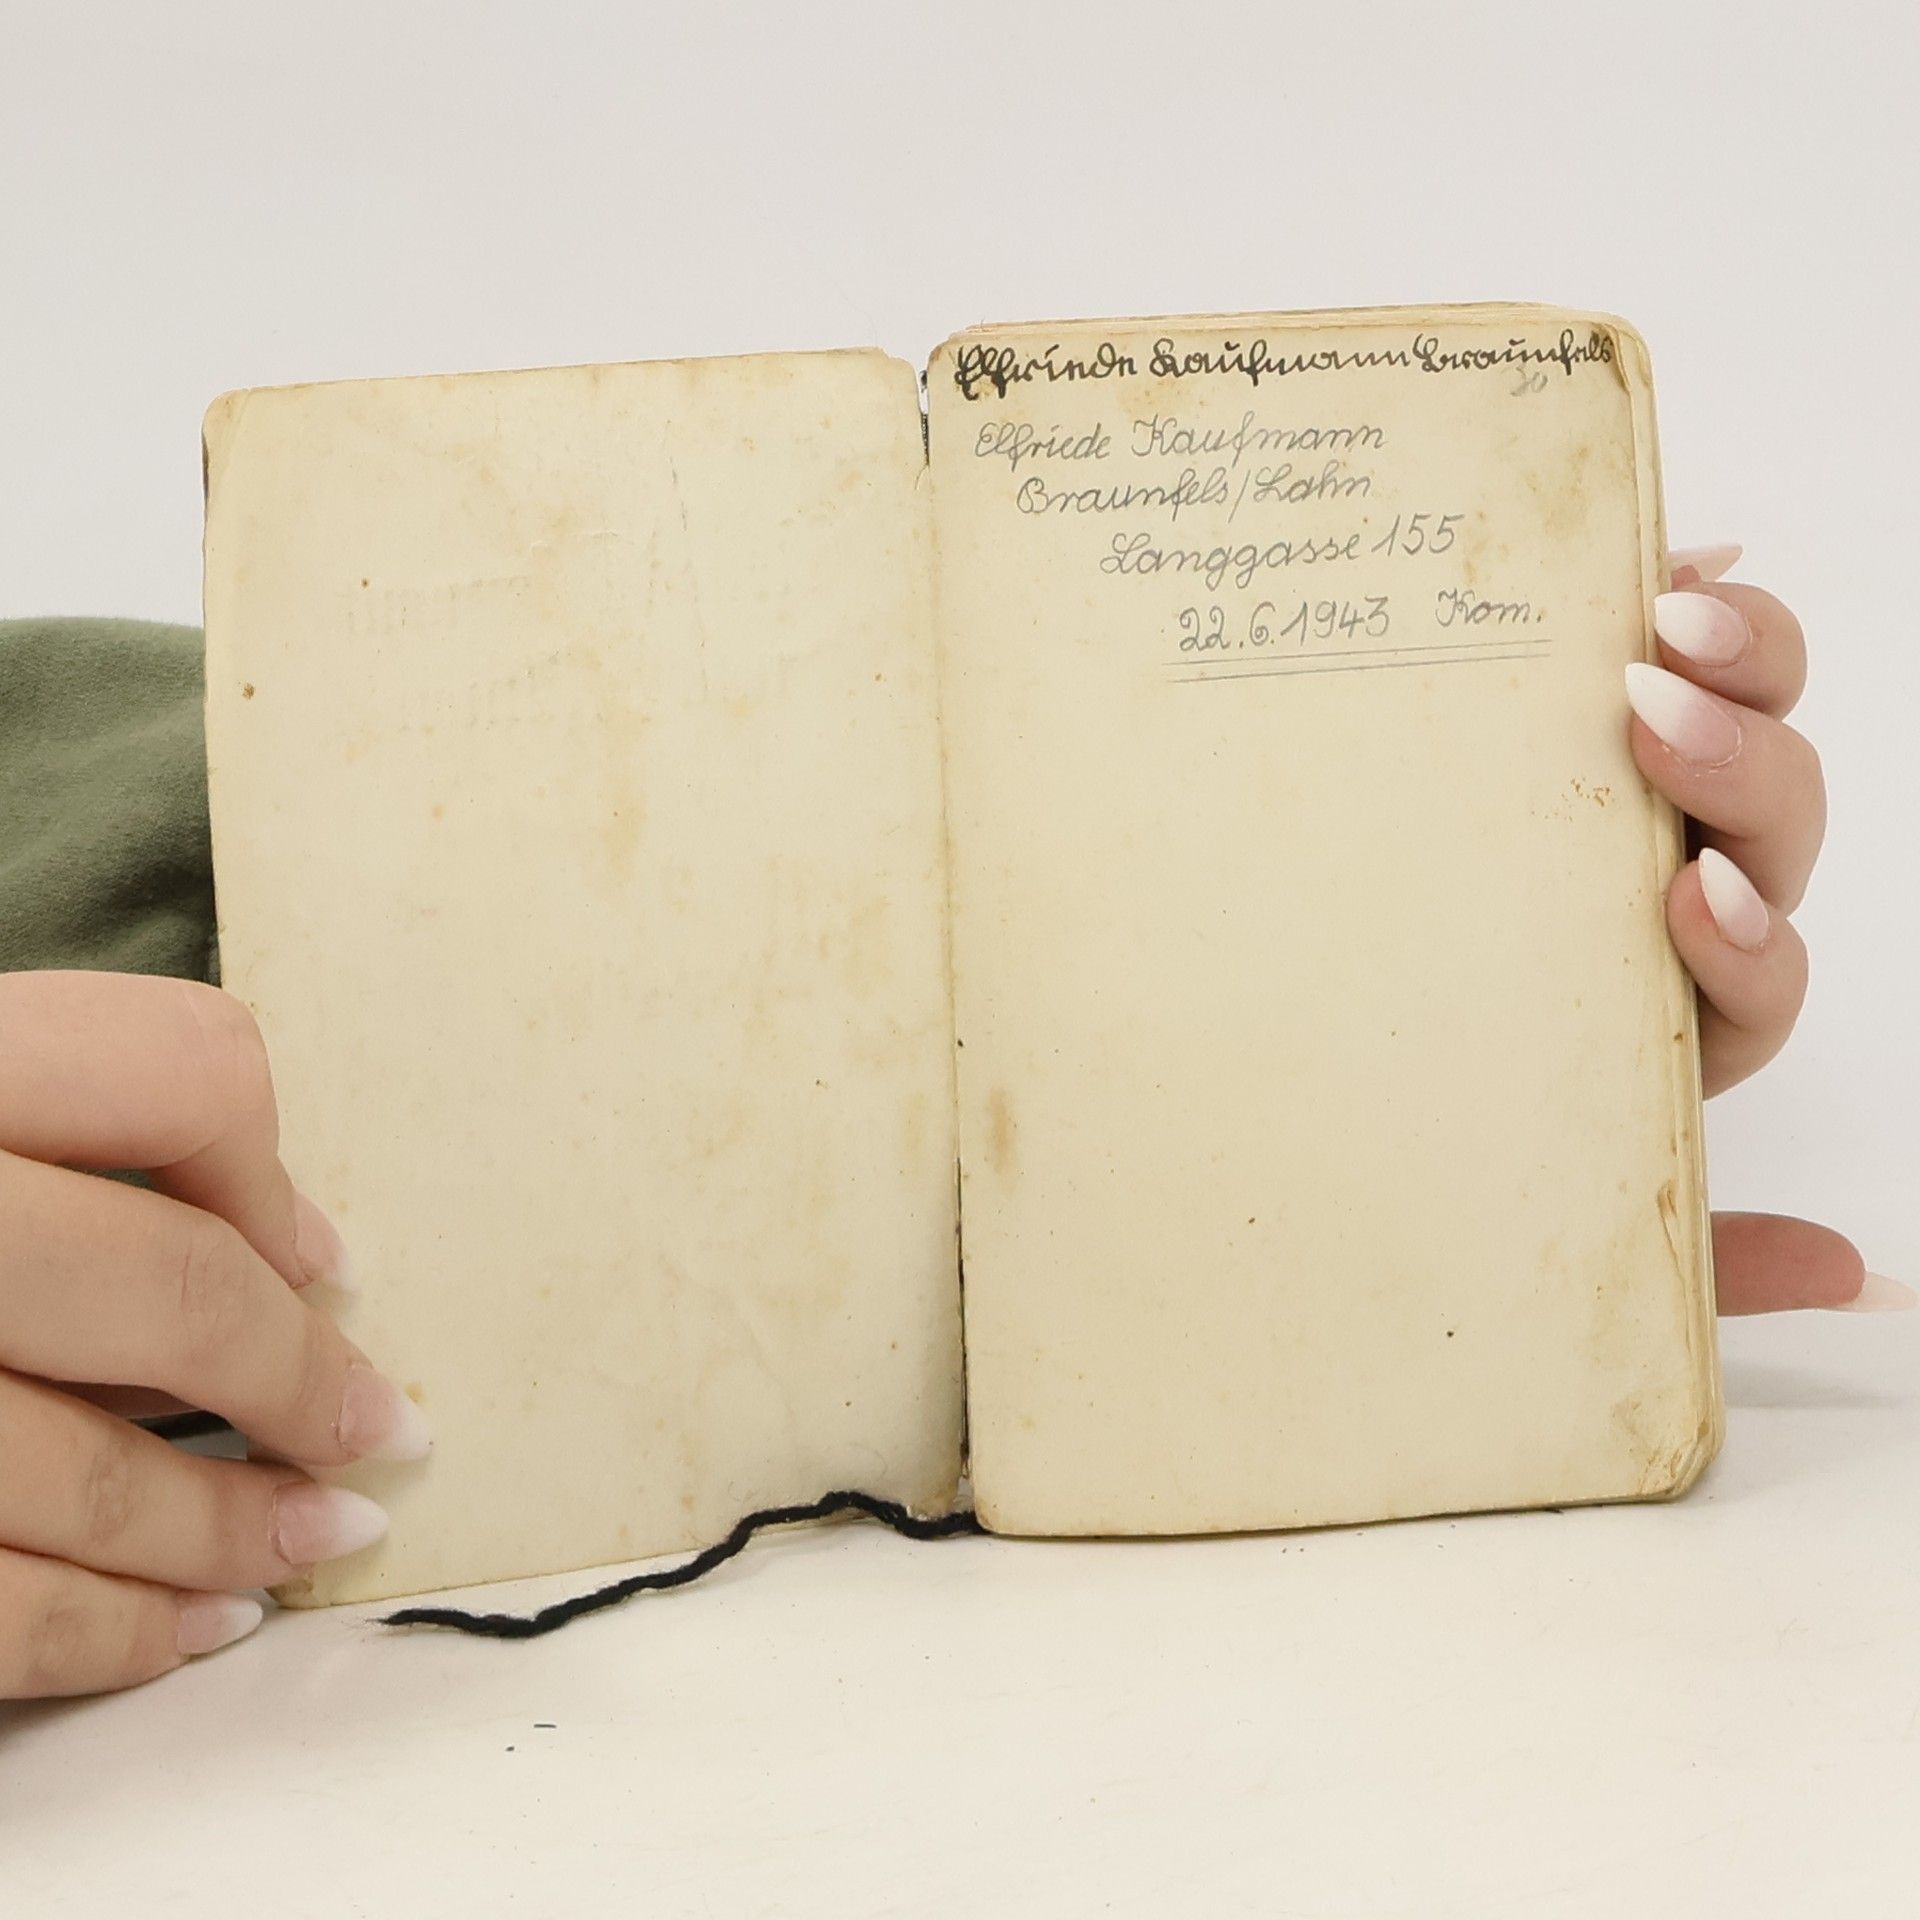 Elfriede Kaufmann Braunfels
Elfriede Kaufmann
Braunfels/Lahn
Langgasse 155
22.6.1943 Kom.